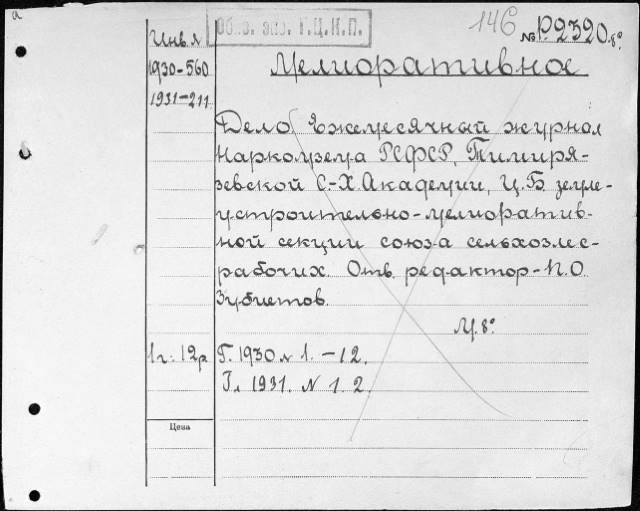 а
Обяз. экз. Г.Ц.К.П.
146 № Р.2320.8°
Инв.л
1930-560
1931-211
Мелиоративное
Дело Ежемесячный журнал
Наркомзема РСФСР, Тимиря-
зевской С.-Х. Академии, Ц.Б. земле-
устроительно-мелиоратив-
ной секции союза сельхозлес-
рабочих. Отв. редактор-П.О.
Зубиетов.
М. 8°
1г: 12р. Г. 1930 № 1.-12.
Г. 1931. N 1. 2.
Цена